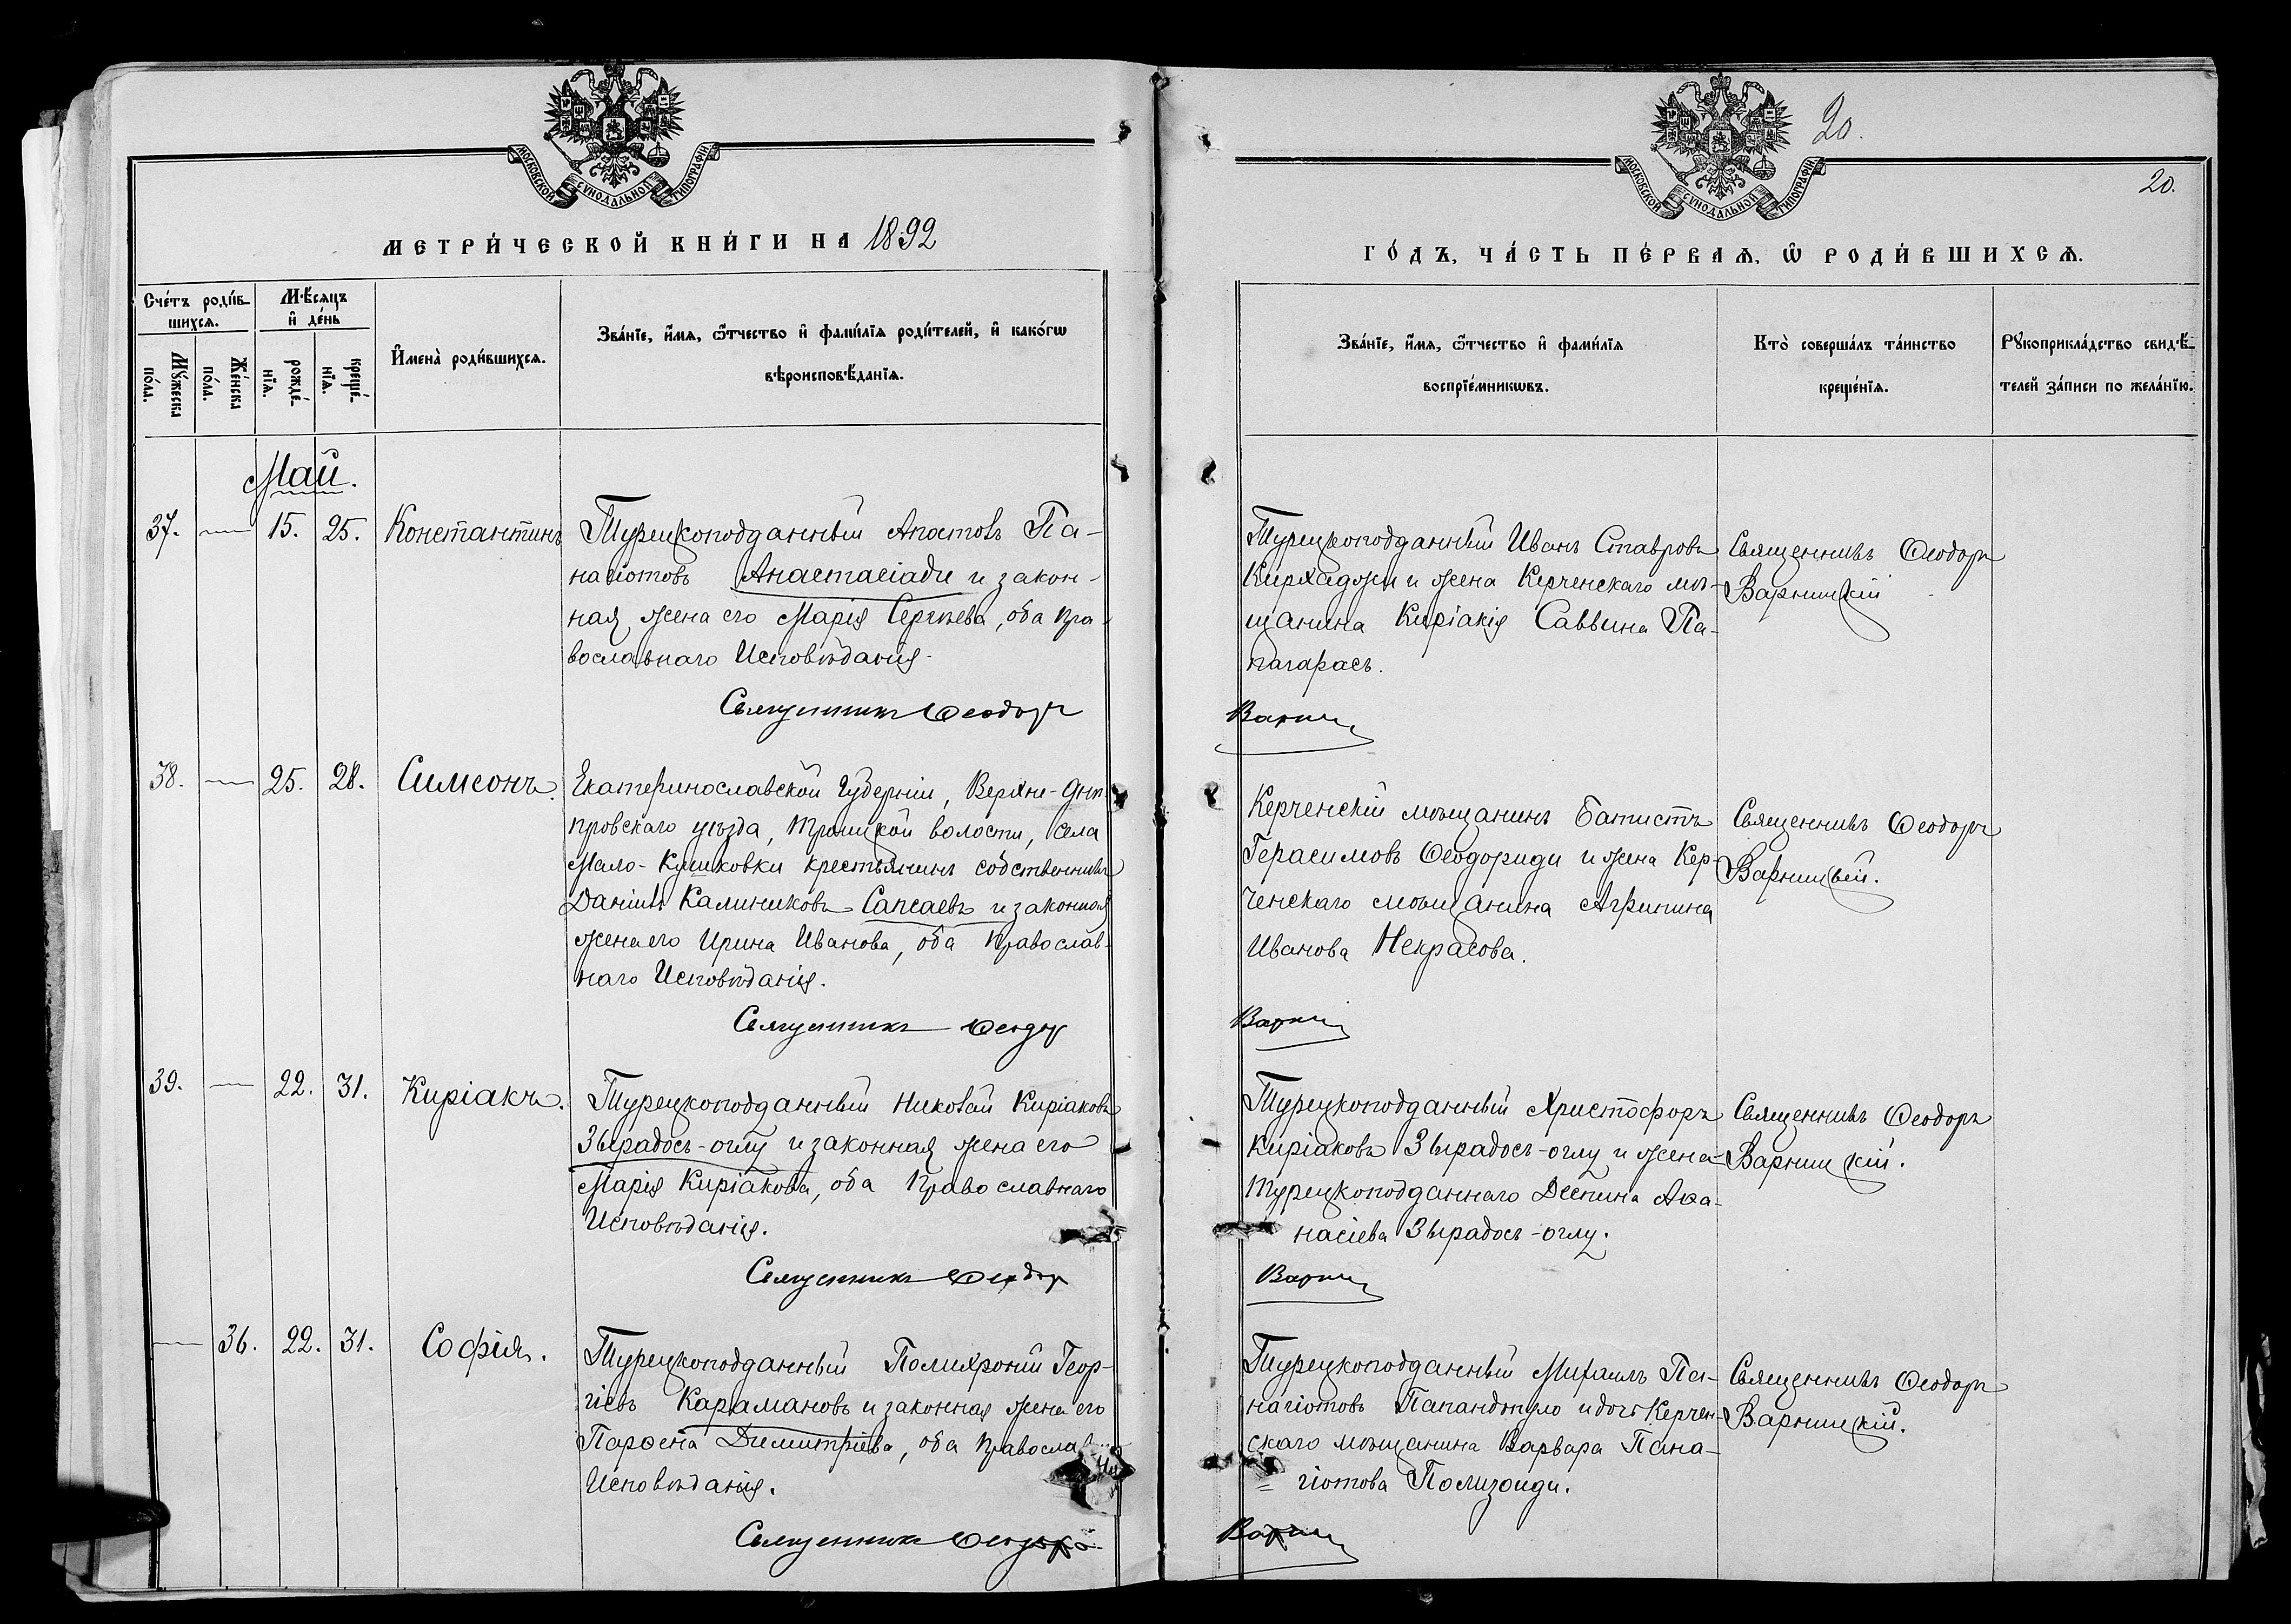 МОСКОВСКОЙ СѴНОДАЛЬНОЙ ТИПОГРАФІИ
МОСКОВСКОЙ СѴНОДАЛЬНОЙ ТИПОГРАФІИ
20.
20.
МЕТРИ́ЧЕСКОЙ КНИ́ГИ НА 1892
ГО́ДЪ, ЧА́СТЬ ПЕ́РВАѦ, Ѡ҆ РОДИ́ВШИХСѦ.
Сче́тъ роди́в-
шихсѧ.
Мꙋ́жеска
по́ла.
Же́нска
по́ла.
Мѣ́сѧцъ
и҆ де́нь
рожде́-
нїѧ.
креще́-
нїѧ.
И҆мена̀ роди́вшихсѧ.
Зва́нїе, и҆́мѧ, ѻ҆́тчество и҆ фами́лїѧ роди́телей, и҆ како́гѡ
вѣроисповѣ́данїѧ.
Зва́нїе, и҆́мѧ, ѻ҆́тчество и҆ фами́лїѧ
воспрїе́мникѡвъ.
Кто̀ соверша́лъ та́инство
креще́нїѧ.
Рꙋкоприкла́дство свидѣ́-
телей за́писи по жела́нїю.
Май.
37. — 15. 25. Константинъ
Турецкоподданный Апостолъ Па-
нагіотовъ Анастасіади и закон-
ная жена его Марія Сергѣева, оба пра-
вославнаго Исповѣданія.
Священникъ Ѳеодоръ
Турецкоподданный Иванъ Ставровъ
Кирхаджи и жена Керченскаго мѣ-
щанина Киріакія Саввина Па-
пагарасъ.
Варниц
Священникъ Ѳеодоръ
Варницкій
38. — 25. 28. Симеонъ.
Екатеринославской Губерніи, Верхне-Днѣ
провскаго уѣзда, Троицкой волости, села
Мало- крестьянинъ собственникъ
Даніилъ Калиниковъ Сапсаевъ и законная
жена его Ирина Иванова, оба православ-
наго Исповѣданія.
Священникъ Ѳеодор
Керченскій мѣщанинъ Батистъ
Герасимовъ Ѳеодориди и жена Кер-
ченскаго мѣщанина Агрипина
Иванова Некрасова.
Варниц
Священникъ Ѳеодоръ
Варницкій.
39. — 22. 31. Киріакъ.
Турецкоподданный Николай Киріаковъ
Зырадосъ-оглу и законная жена его
Марія Киріакова, оба Православнаго
Исповѣданія.
Священникъ Ѳеодор
Турецкоподданный Христофоръ
Киріаковъ Зырадосъ-оглу и жена
Турецкоподданнаго Деспина Аѳа-
насіева Зырадосъ-оглу.
Варниц
Священникъ Ѳеодоръ
Варницкій.
— 36. 22. 31. Софія.
Турецкоподданный Полихроній Геор-
гіевъ Карамановъ и законная жена его
Парѳена Димитріева, оба православ
Исповѣданія.
Священникъ Ѳеодоръ
Турецкоподданный Михаилъ Па-
нагіотовъ Папандопуло и дочь Керчен-
скаго мѣщанина Варвара Пана-
гіотова Полизоиди.
Варниц
Священникъ Ѳеодоръ
Варницкій.